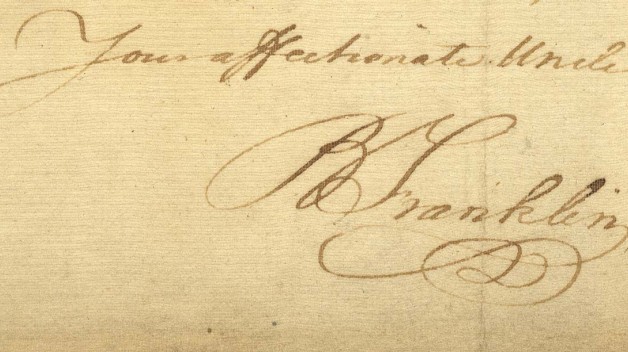 Your affectionate Uncle
B Franklin